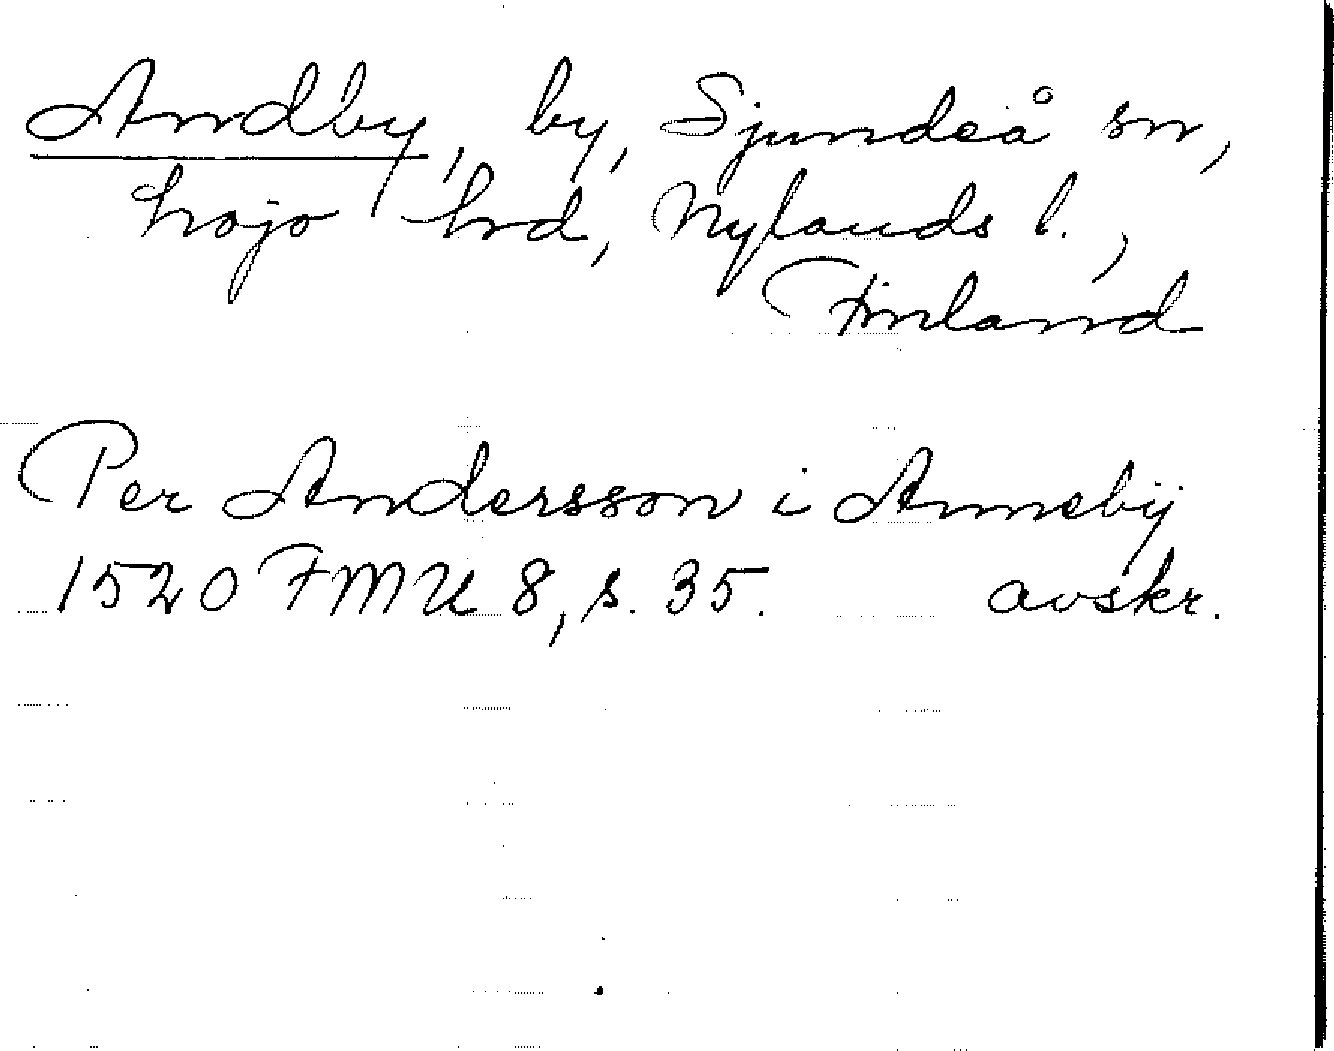 Andby, by, Sjundeå sn,
Lojo hrd, Nylands l.,
Finland
Per Andersson i Annebÿ
1520 FMU 8, s. 35. avskr.